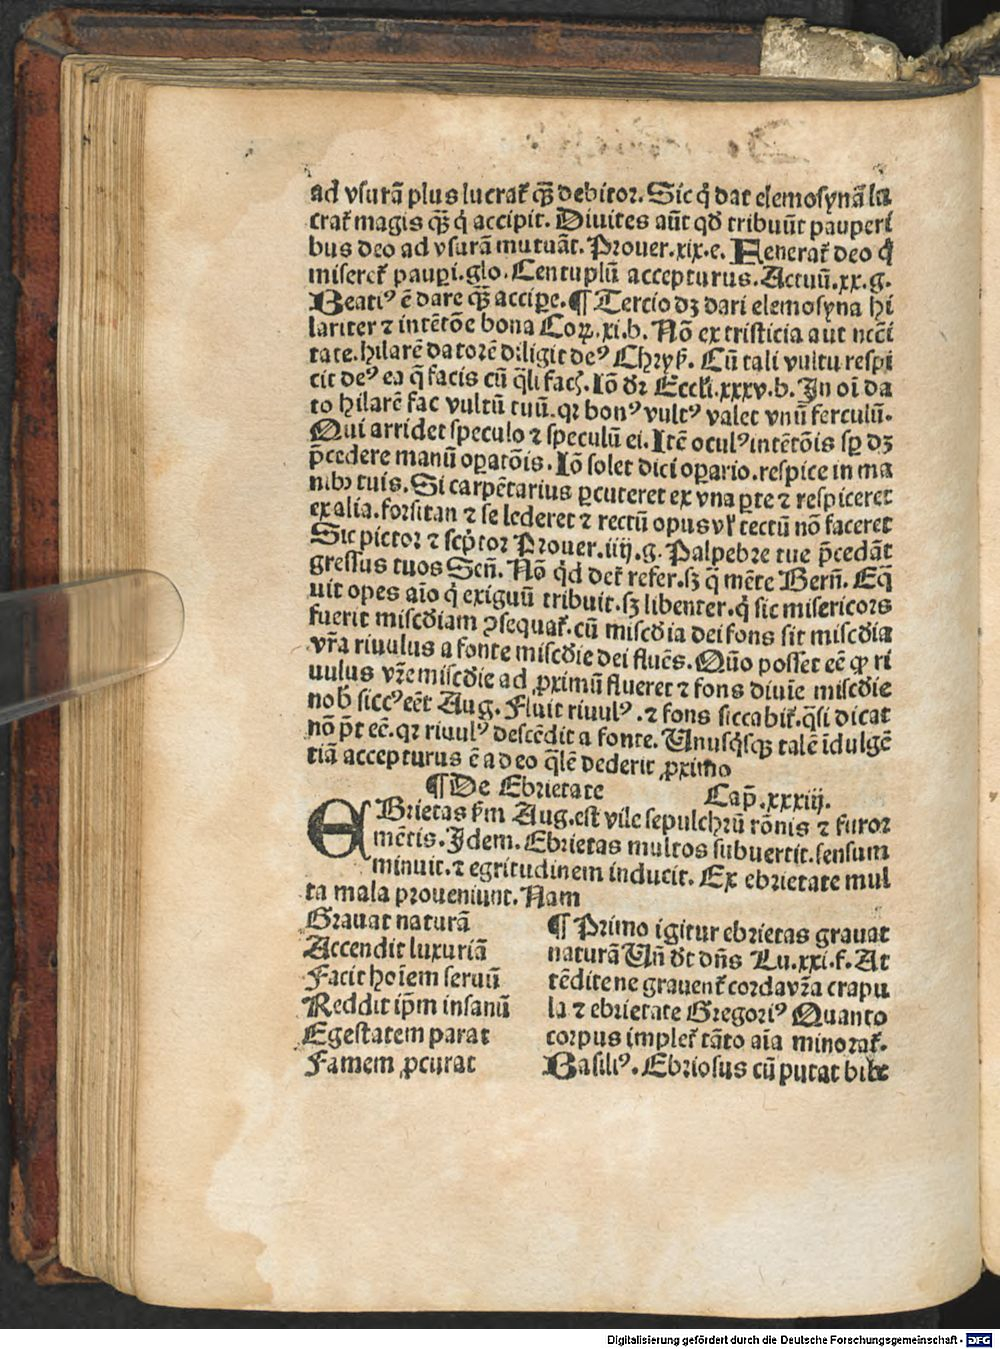 ad vsurã plus lucrat᷑ q̃ȝ debitor. Sic q̇ dat elemosynã lu
crat᷑ magis q̃ȝ q̇ accipit. Diuites aũt qđ tribuũt pauperi
bus deo ad vsurã mutuãt. Prouer.xix.e. Fenerat᷑ deo q̇
miseret᷑ paupi.glo. Centuplũ accepturus. Actuũ.xx.g.
Beatiꝰ ẽ dare q̃ȝ accipe. ¶ Tercio dȝ dari elemosyna hi
lariter ⁊ intẽtõe bona Coꝝ.xi.b. Nõ ex tristicia aut necẽi
tate. hilarẽ datorẽ diligit deꝰ Chryß. Cũ tali vultu respi
cit deꝰ ea q̃ facis cũ q̃li facꝭ. Iõ dr̃ Eccłi.xxxv.b. In oĩ da
to hilarẽ fac vultũ tuũ. qꝛ bonꝰ vultꝰ valet vnũ ferculũ.
Qui arridet speculo ⁊ speculũ ei. Itẽ oculꝰ intẽtõis sꝑ dȝ
p̃cedere manũ oꝑatõis. Iõ solet dici oꝑario. respice in ma
nibꝰ tuis. Si carpẽtarius ꝑcuteret ex vna ꝑte ⁊ respiceret
ex alia. forsitan ⁊ se lederet ⁊ rectũ opus vł tectũ nõ faceret
Sic pictor ⁊ scp̃tor Prouer.iiij.g. Palpebre tue p̃cedãt
gressus tuos Señ. Nõ q̇d det᷑ refer. sȝ q̃ mẽte Berñ. Eq̃
uit opes aĩo q̇ exiguũ tribuit. sȝ libenter. q̇ sic misericors
fuerit miscđiam ꝯsequat᷑. cũ miscđia dei fons sit miscđia
vr̃a riuulus a fonte miscđie dei fluẽs. Quõ posset eẽ ꝙ ri
uulus vr̃e miscđie ad ꝓximũ flueret ⁊ fons diuĩe miscđie
nob̃ siccꝰ eẽt Aug. Fluit riuulꝰ. ⁊ fons siccabit᷑. q̃si dicat
nõ p̃t eẽ. qꝛ riuulꝰ descẽdit a fonte. Unusq̇sqȝ talẽ ĩdulgẽ
tiã accepturus ẽ a deo q̃lẽ dederit ꝓximo
¶ De Ebrietate Cap̃.xxxiij.
EBrietas ẜm Aug. est vile sepulchrũ rõnis ⁊ furor
mẽtis. Idem. Ebrietas multos subuertit. sensum
minuit. ⁊ egritudinem inducit. Ex ebrietate mul
ta mala proueniunt. Nam
Grauat naturã
Accendit luxuriã
Facit hoĩem seruũ
Reddit ip̃m insanũ
Egestatem parat
Famem ꝓcurat
¶ Primo igitur ebrietas grauat
naturã Uñ dt̃ dñs Lu.xxi.f. At
tẽdite ne grauent᷑ corda vr̃a crapu
la ⁊ ebrietate Gregoriꝰ Quanto
corpus implet᷑ tãto aĩa minorat᷑.
Basiliꝰ. Ebriosus cũ putat bibe
Digitalisierung gefördert durch die Deutsche Forschungsgemeinschaft - DFG